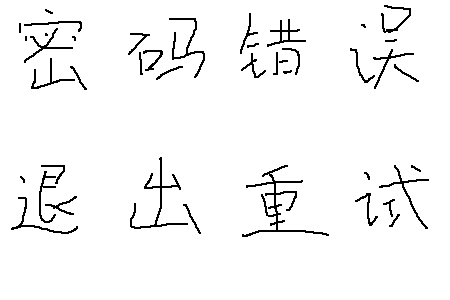 密码错误
退出重试